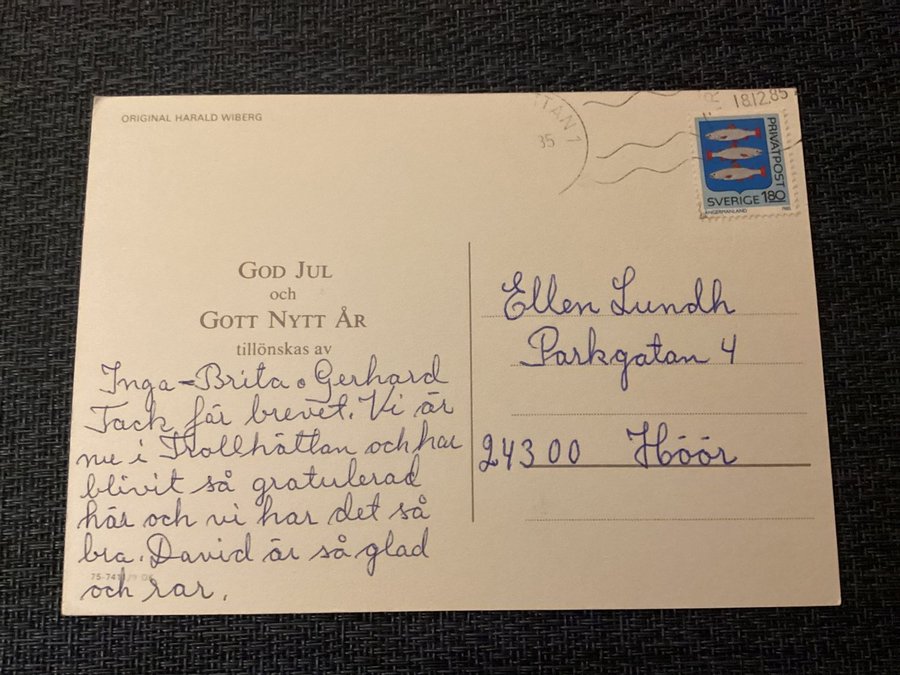 ORIGINAL HARALD WIBERG
TTAN 1
85
18.12.85
PRIVATPOST
SVERIGE 180
ÅNGERMANLAND
GOD JUL
och
GOTT NYTT ÅR
tillönskas av
Inga-Brita o Gerhard
Tack får brevet. Vi är
nu i Trollhättan och har
blivit så gratulerad
här och vi har det så
bra. David är så glad
och rar.
75-741
Ellen Lundh
Parkgatan 4
243 00 Höör